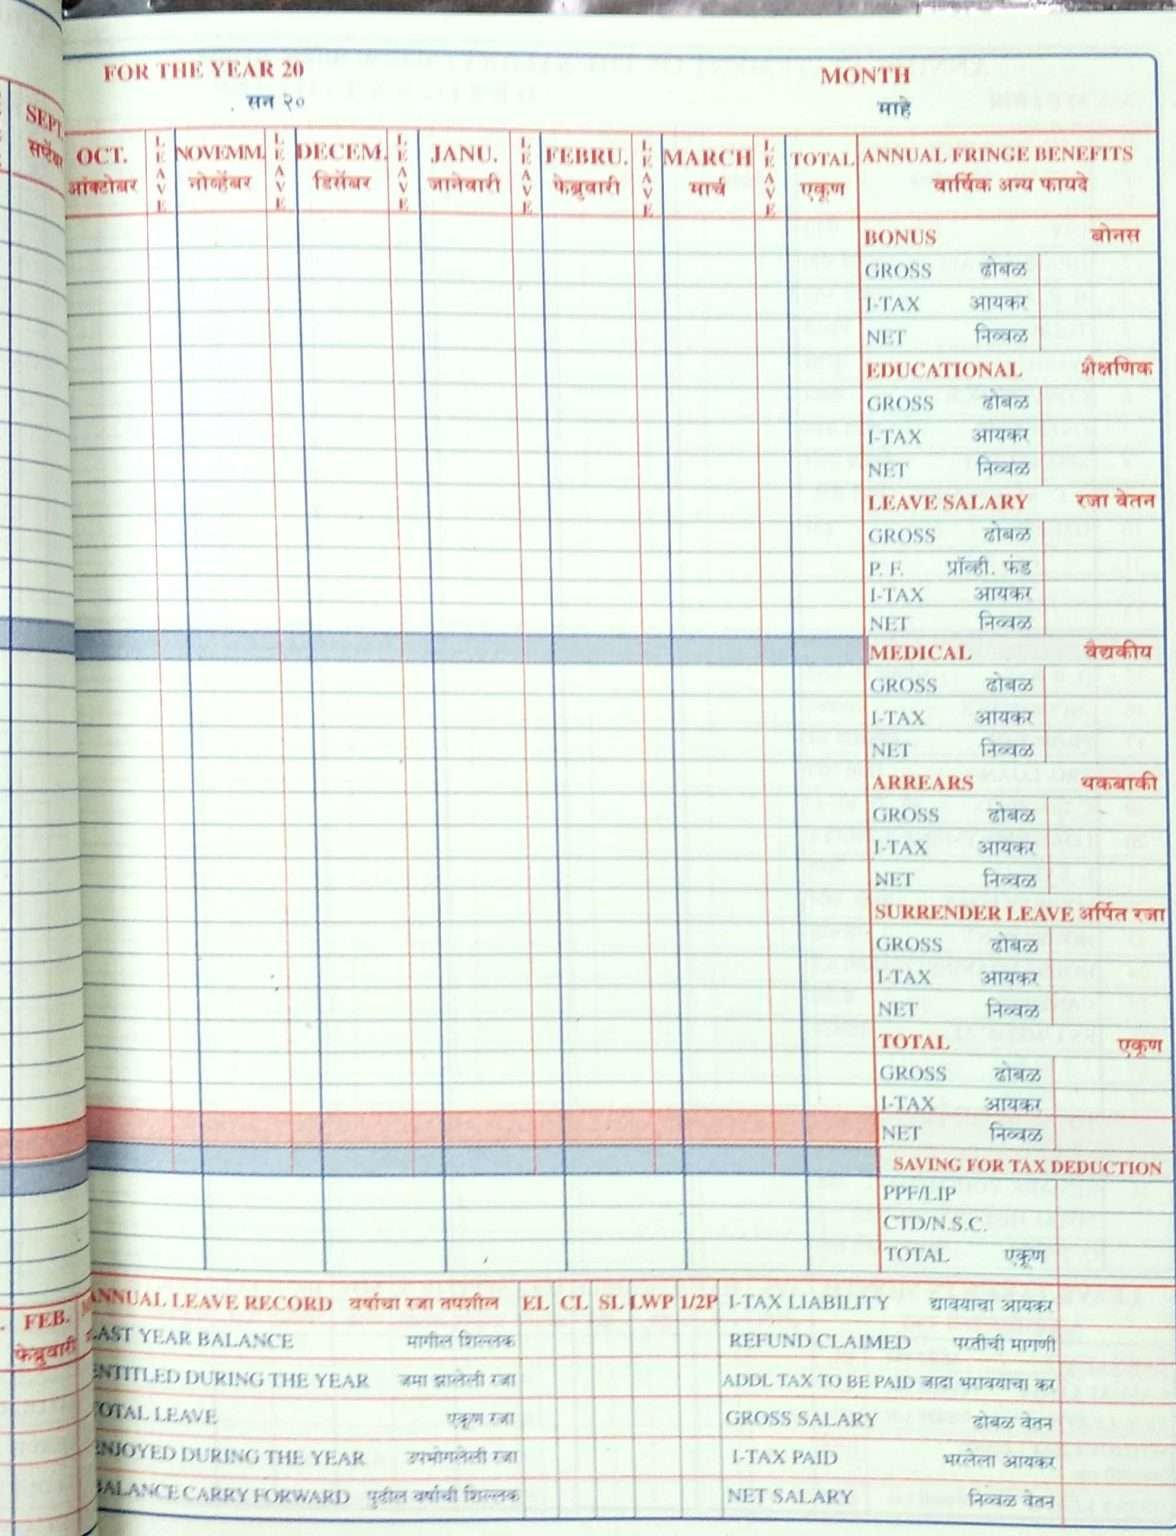 FOR THE YEAR 20 MONTH
सन २० माहे
SEPT.
सप्टेंबर
OCT. LEAVE NOVEMM. LEAVE DECEM. LEAVE JANU. LEAVE FEBRU. LEAVE MARCH LEAVE TOTAL ANNUAL FRINGE BENEFITS
ऑक्टोबर नोव्हेंबर डिसेंबर जानेवारी फेब्रुवारी मार्च एकूण वार्षिक अन्य फायदे
BONUS बोनस
GROSS ढोबळ
I-TAX आयकर
NET निव्वळ
EDUCATIONAL शैक्षणिक
GROSS ढोबळ
I-TAX आयकर
NET निव्वळ
LEAVE SALARY रजा वेतन
GROSS ढोबळ
P. F. प्रॉव्ही. फंड
I-TAX आयकर
NET निव्वळ
MEDICAL वैद्यकीय
GROSS ढोबळ
I-TAX आयकर
NET निव्वळ
ARREARS थकबाकी
GROSS ढोबळ
I-TAX आयकर
NET निव्वळ
SURRENDER LEAVE अर्पित रजा
GROSS ढोबळ
I-TAX आयकर
NET निव्वळ
TOTAL एकूण
GROSS ढोबळ
I-TAX आयकर
NET निव्वळ
SAVING FOR TAX DEDUCTION
PPF/LIP
CTD/N.S.C.
TOTAL एकूण
FEB.
फेब्रुवारी
ANNUAL LEAVE RECORD वर्षाचा रजा तपशील EL CL SL LWP 1/2P I-TAX LIABILITY द्यावयाचा आयकर
LAST YEAR BALANCE मागील शिल्लक REFUND CLAIMED परतीची मागणी
ENTITLED DURING THE YEAR जमा झालेली रजा ADDL TAX TO BE PAID जादा भरावयाचा कर
TOTAL LEAVE एकूण रजा GROSS SALARY ढोबळ वेतन
ENJOYED DURING THE YEAR उपभोगलेली रजा I-TAX PAID भरलेला आयकर
BALANCE CARRY FORWARD पुढील वर्षाची शिल्लक NET SALARY निव्वळ वेतन